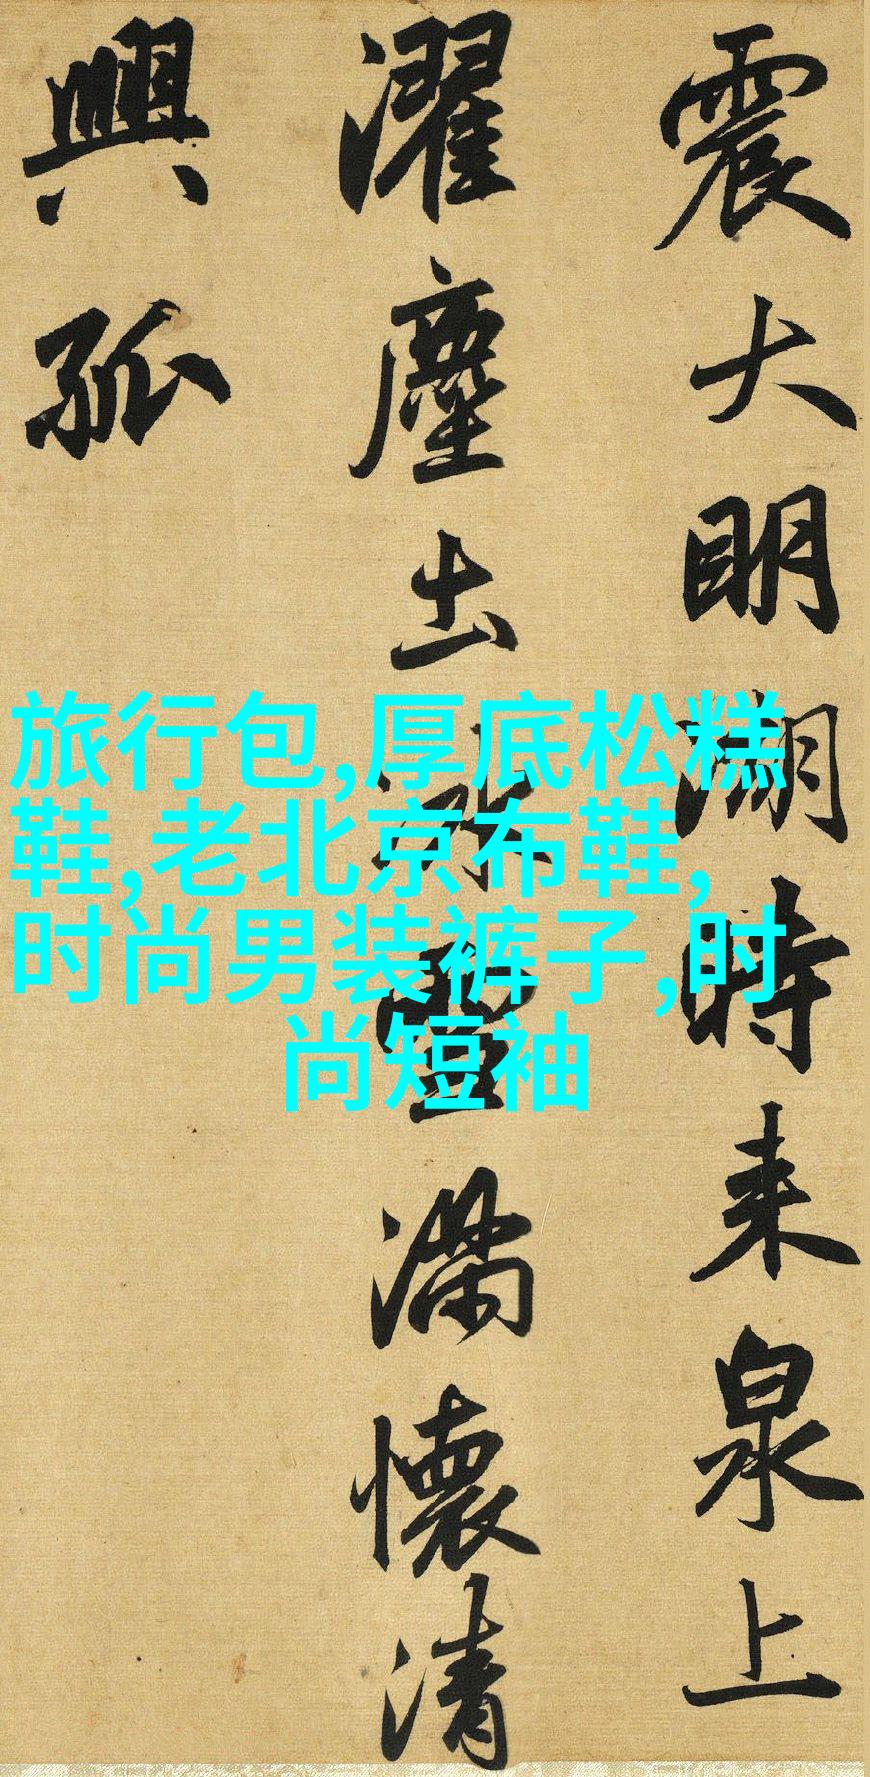 震大明湖時来泉上
濯塵土冰雪滿懷清
興孤
旅行包,厚底松糕
鞋,老北京布鞋,
时尚男装裤子,时
尚短袖